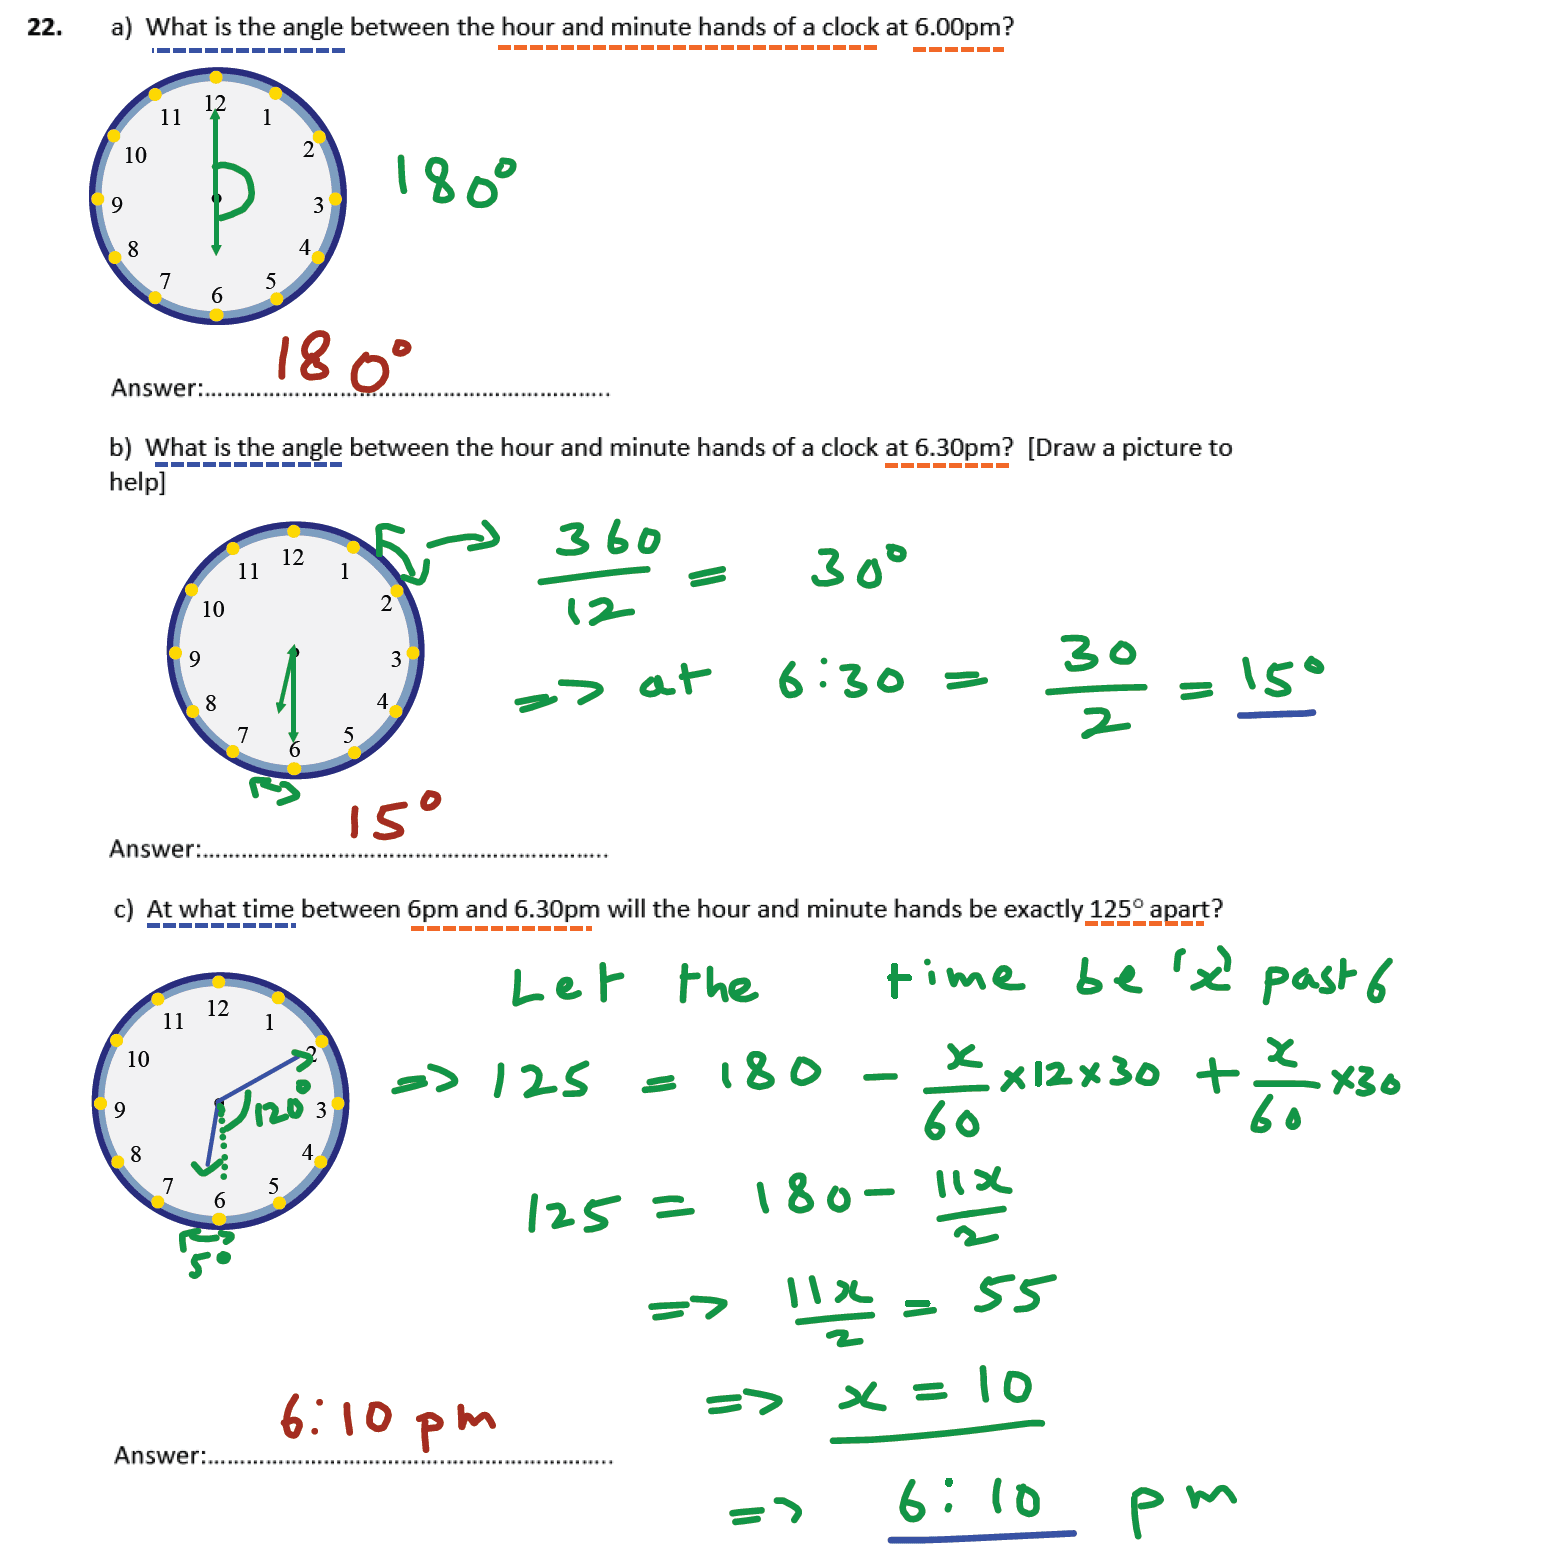 22. a) What is the angle between the hour and minute hands of a clock at 6.00pm?
12
11 1
10 2
9 3
8 4
7 5
6
180°
180°
Answer:..........................................................
b) What is the angle between the hour and minute hands of a clock at 6.30pm? [Draw a picture to
help]
12
11 1
10 2
9 3
8 4
7 5
6
360/12 = 30°
=> at 6:30 = 30/2 = 15°
15°
Answer:..........................................................
c) At what time between 6pm and 6.30pm will the hour and minute hands be exactly 125° apart?
12
11 1
10 2
9 120° 3
8 4
7 5
6
5°
Let the time be 'x' past 6
=> 125 = 180 - x/60 ×12×30 + x/60 ×30
125 = 180 - 11x/2
=> 11x/2 = 55
=> x = 10
6:10 pm
Answer:..........................................................
=> 6:10 pm